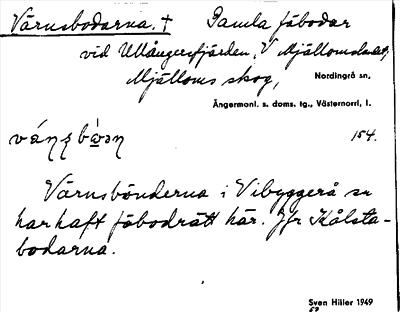 Värnsbodarna. † Gamla fäbodar
vid Ullångersfjärden, V Mjällomslandet,
Mjälloms skog, Nordingrå sn,
Ångermanl. s. doms. tg., Västernorrl. l.
154.
Värnsbönderna i Vibyggerå sn
har haft fäbodrätt här. Jfr Kålsta-
bodarna.
Sven Hiller 1949